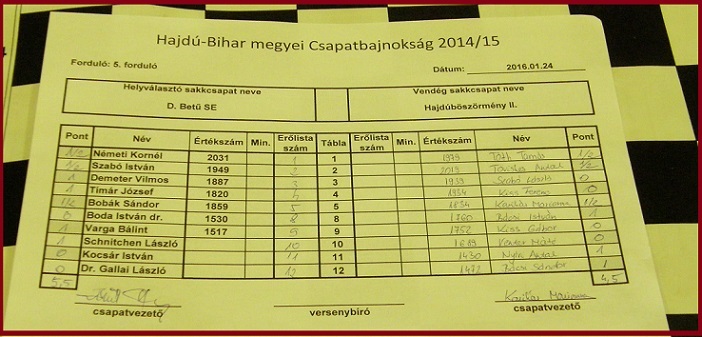 Hajdú-Bihar megyei Csapatbajnokság 2014/15
Forduló: 5. forduló Dátum: 2016.01.24
Helyválasztó sakkcsapat neve Vendég sakkcsapat neve
D. Betű SE Hajdúböszörmény II.
Pont Név Értékszám Min. Erőlista szám Tábla Erőlista szám Min. Értékszám Név Pont
1/2 Németi Kornél 2031 1 1 1979 Tóth Tamás 1/2
1/2 Szabó István 1949 2 2 2019 Antal 1/2
1 Demeter Vilmos 1887 3 3 1939 Szabó László 0
1 Tímár József 1820 4 4 1934 Kiss Ferenc 0
1/2 Bobák Sándor 1859 5 5 1834 Marianna 1/2
0 Boda István dr. 1530 8 8 1760 Rácsi István 1
1 Varga Bálint 1517 9 9 1752 Kiss Gábor 0
1 Schnitchen László 10 10 1619 Máté 0
0 Kocsár István 11 11 1430 Antal 1
0 Dr. Gallai László 12 12 1472 Rácsi Sándor 1
5,5 4,5
Marianna
csapatvezető versenybíró csapatvezető